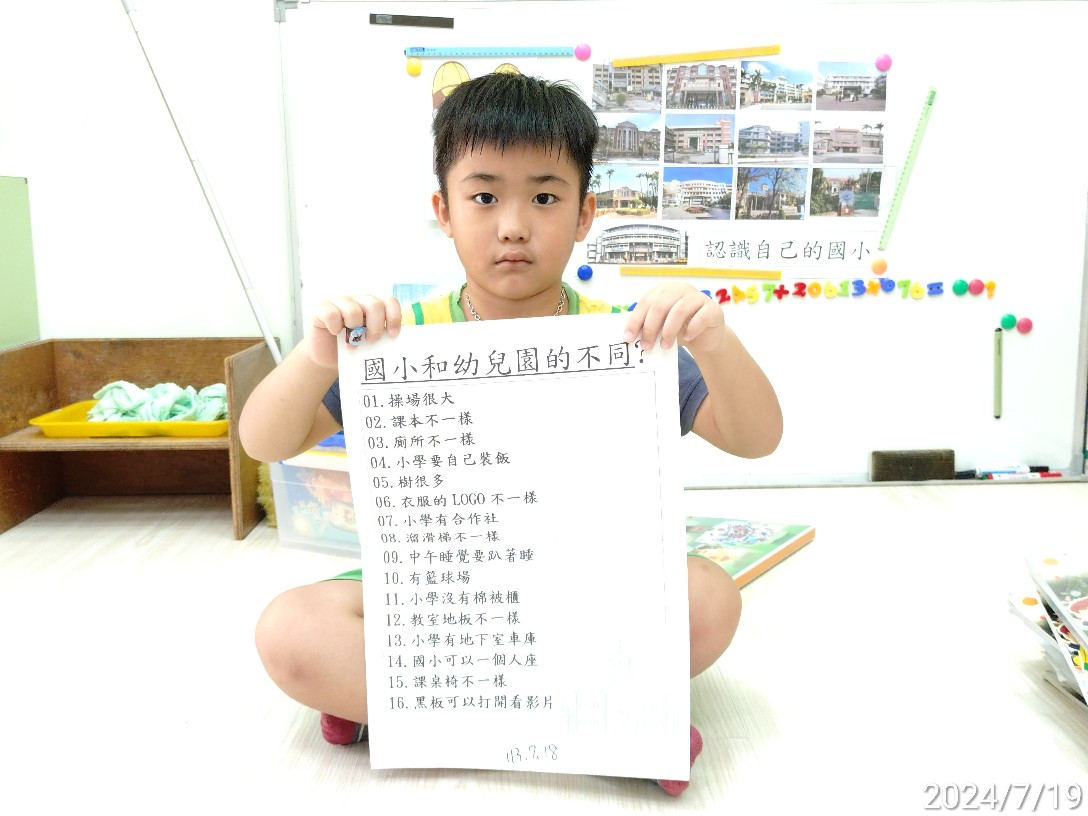 認識自己的國小
國小和幼兒園的不同?
01.操場很大
02.課本不一樣
03.廁所不一樣
04.小學要自己裝飯
05.樹很多
06.衣服的LOGO不一樣
07.小學有合作社
08.溜滑梯不一樣
09.中午睡覺要趴著睡
10.有籃球場
11.小學沒有棉被櫃
12.教室地板不一樣
13.小學有地下室車庫
14.國小可以一個人座
15.課桌椅不一樣
16.黑板可以打開看影片
113.7.18
2024/7/19